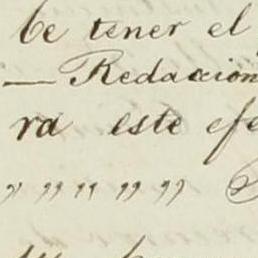 be tener el
— Redaccion
ra este efe
" " " " "